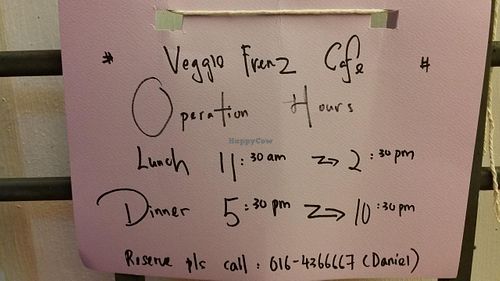 # Veggio Frenz Cafe #
Operation Hours
HappyCow
Lunch 11:30 am → 2:30 pm
Dinner 5:30 pm → 10:30 pm
Reserve pls call : 016-4366667 (Daniel)